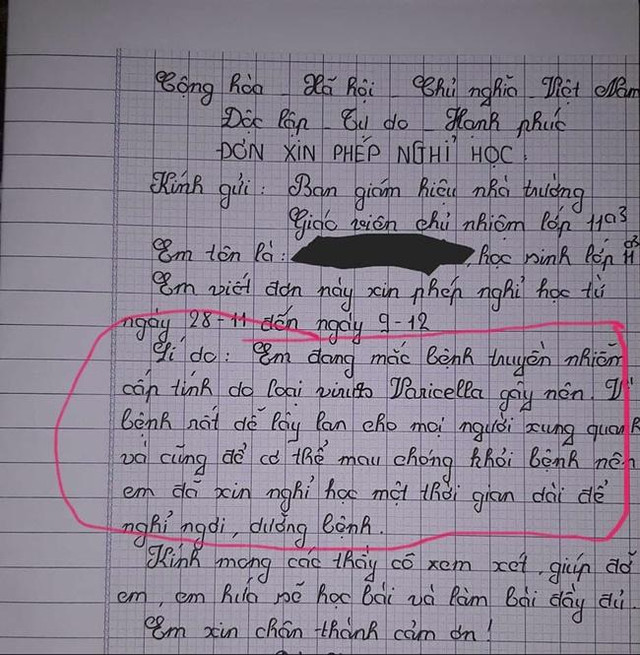 Cộng hòa - Xã hội - Chủ nghĩa Việt Nam
Độc lập - Tự do - Hạnh phúc
ĐƠN XIN PHÉP NGHỈ HỌC.
Kính gửi: Ban giám hiệu nhà trường
Giáo viên chủ nhiệm lớp 11a3
Em tên là: , học sinh lớp 11a3
Em viết đơn này xin phép nghỉ học từ
ngày 28-11 đến ngày 9-12
Lí do: Em đang mắc bệnh truyền nhiễm
cấp tính do loại virut Varicella gây nên. Vì
bệnh rất dễ lây lan cho mọi người xung quanh
và cũng để có thể mau chóng khỏi bệnh nên
em đã xin nghỉ học một thời gian dài để
nghỉ ngơi, dưỡng bệnh.
Kính mong các thầy cô xem xét, giúp đỡ
em, em hứa sẽ học bài và làm bài đầy đủ.
Em xin chân thành cảm ơn!